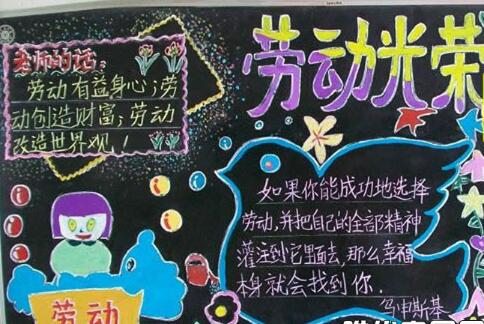 劳动光荣
老师的话：
劳动有益身心；劳
动创造财富；劳动
改造世界观！
如果你能成功地选择
劳动，并把自己的全部精神
灌注到它里面去，那么幸福
本身就会找到你．
乌申斯基
劳动